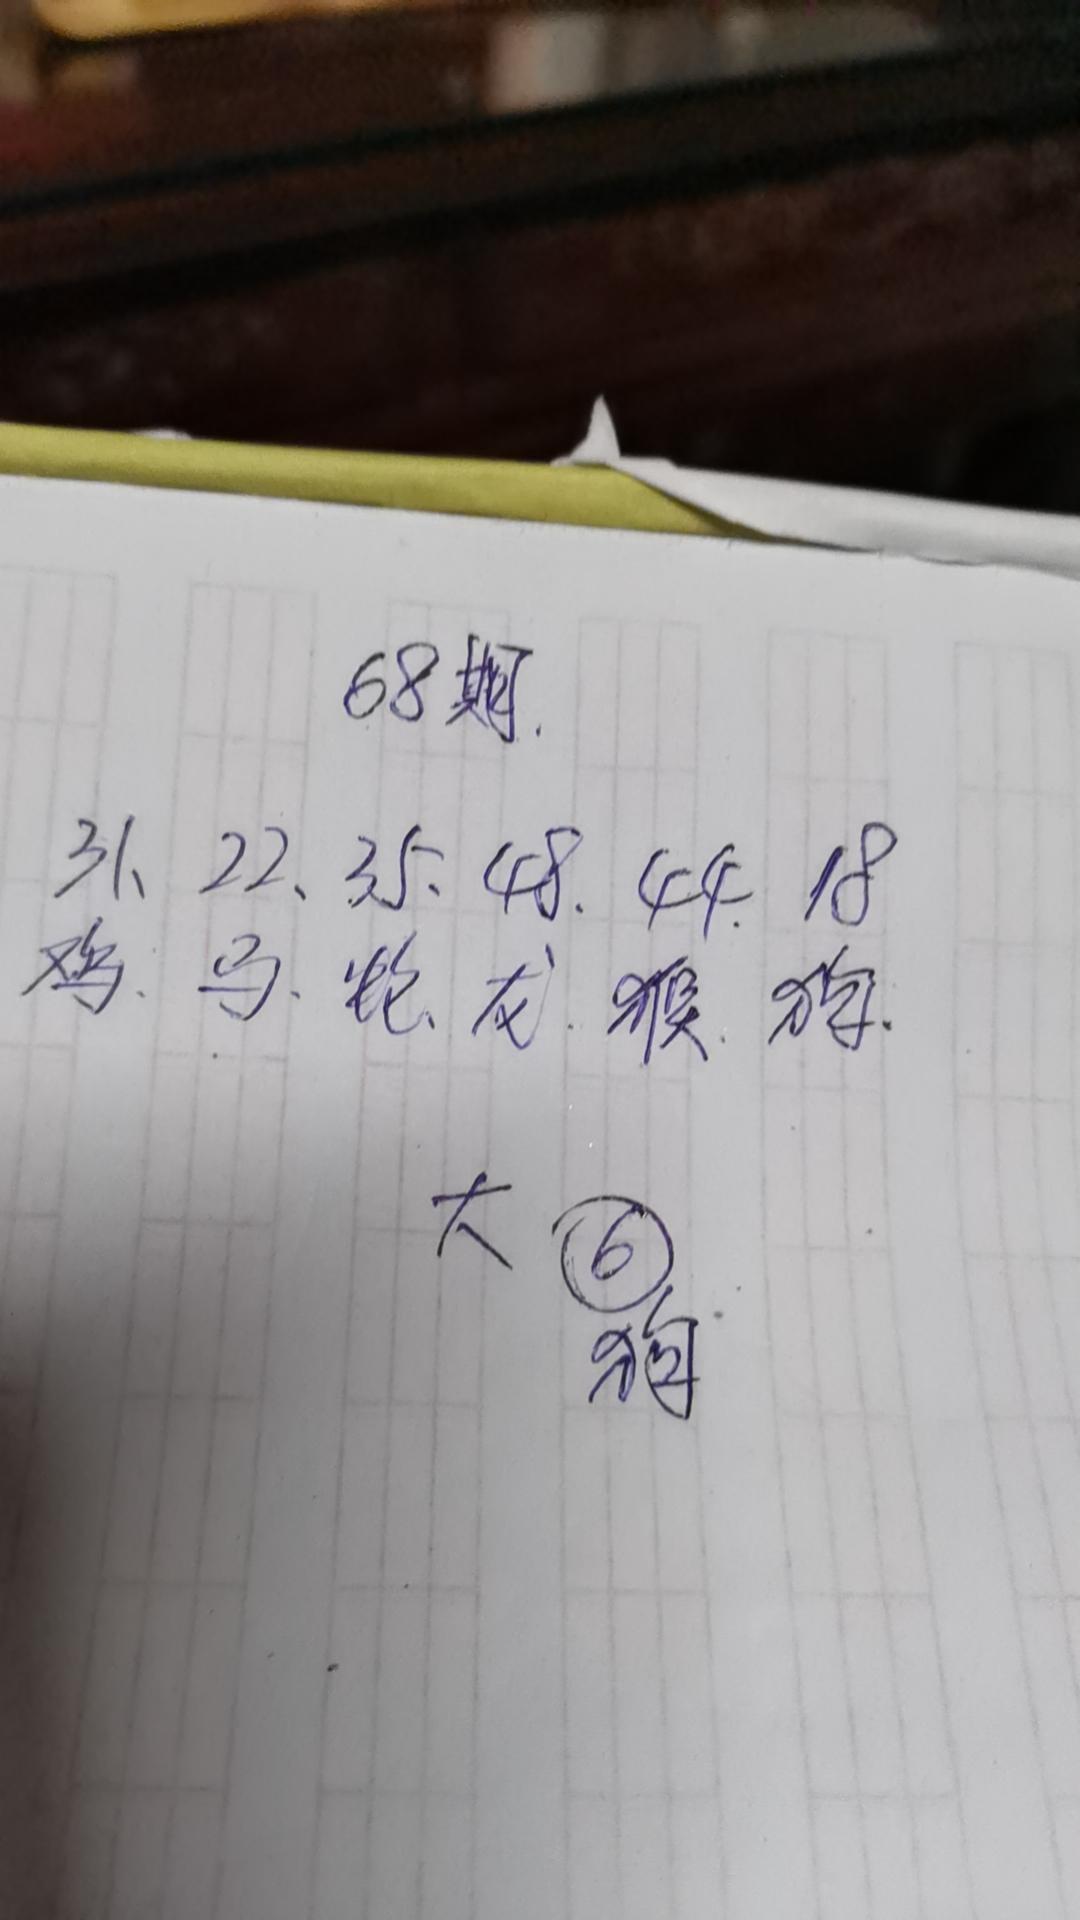 68期.
31、22、35、48.44.18
鸡、马、蛇、龙.猴.狗.
大 ⑥
狗